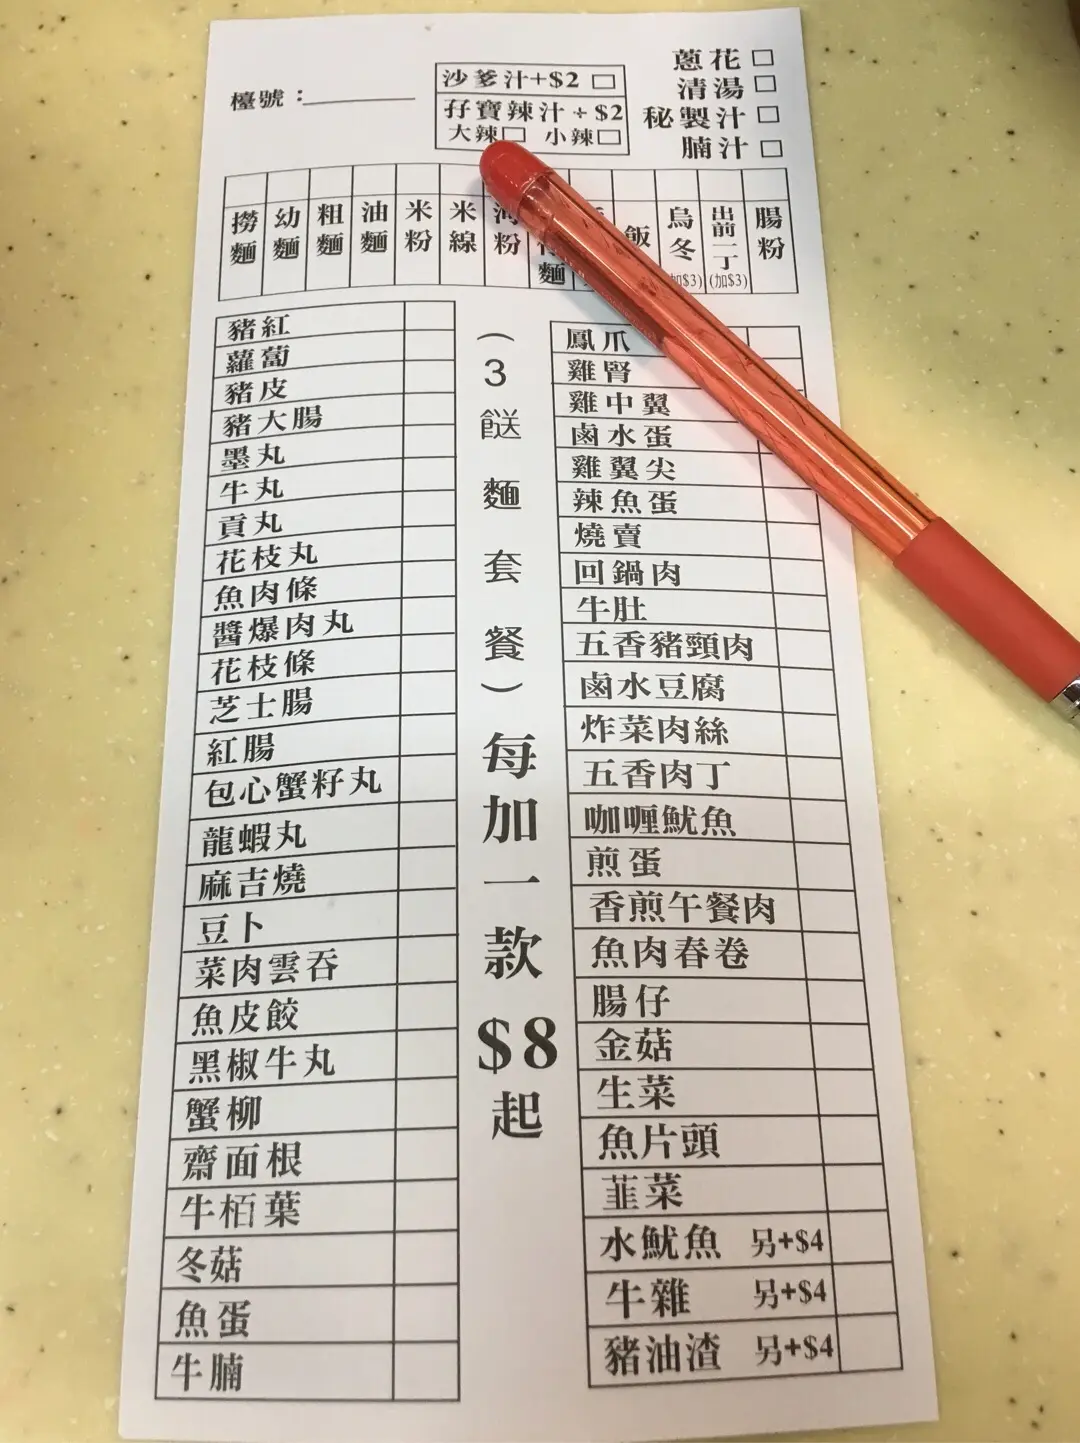 檯號：
沙爹汁+$2
孖寶辣汁+$2
大辣 小辣
蔥花
清湯
秘製汁
腩汁
撈麵
幼麵
粗麵
油麵
米粉
米線
河粉
麵
飯
烏冬
(加$3)
出前一丁
(加$3)
腸粉
豬紅
蘿蔔
豬皮
豬大腸
墨丸
牛丸
貢丸
花枝丸
魚肉條
醬爆肉丸
花枝條
芝士腸
紅腸
包心蟹籽丸
龍蝦丸
麻吉燒
豆卜
菜肉雲吞
魚皮餃
黑椒牛丸
蟹柳
齋面根
牛栢葉
冬菇
魚蛋
牛腩
（3餸麵套餐）每加一款$8起
鳳爪
雞腎
雞中翼
鹵水蛋
雞翼尖
辣魚蛋
燒賣
回鍋肉
牛肚
五香豬頸肉
鹵水豆腐
炸菜肉絲
五香肉丁
咖喱魷魚
煎蛋
香煎午餐肉
魚肉春卷
腸仔
金菇
生菜
魚片頭
韮菜
水魷魚 另+$4
牛雜 另+$4
豬油渣 另+$4